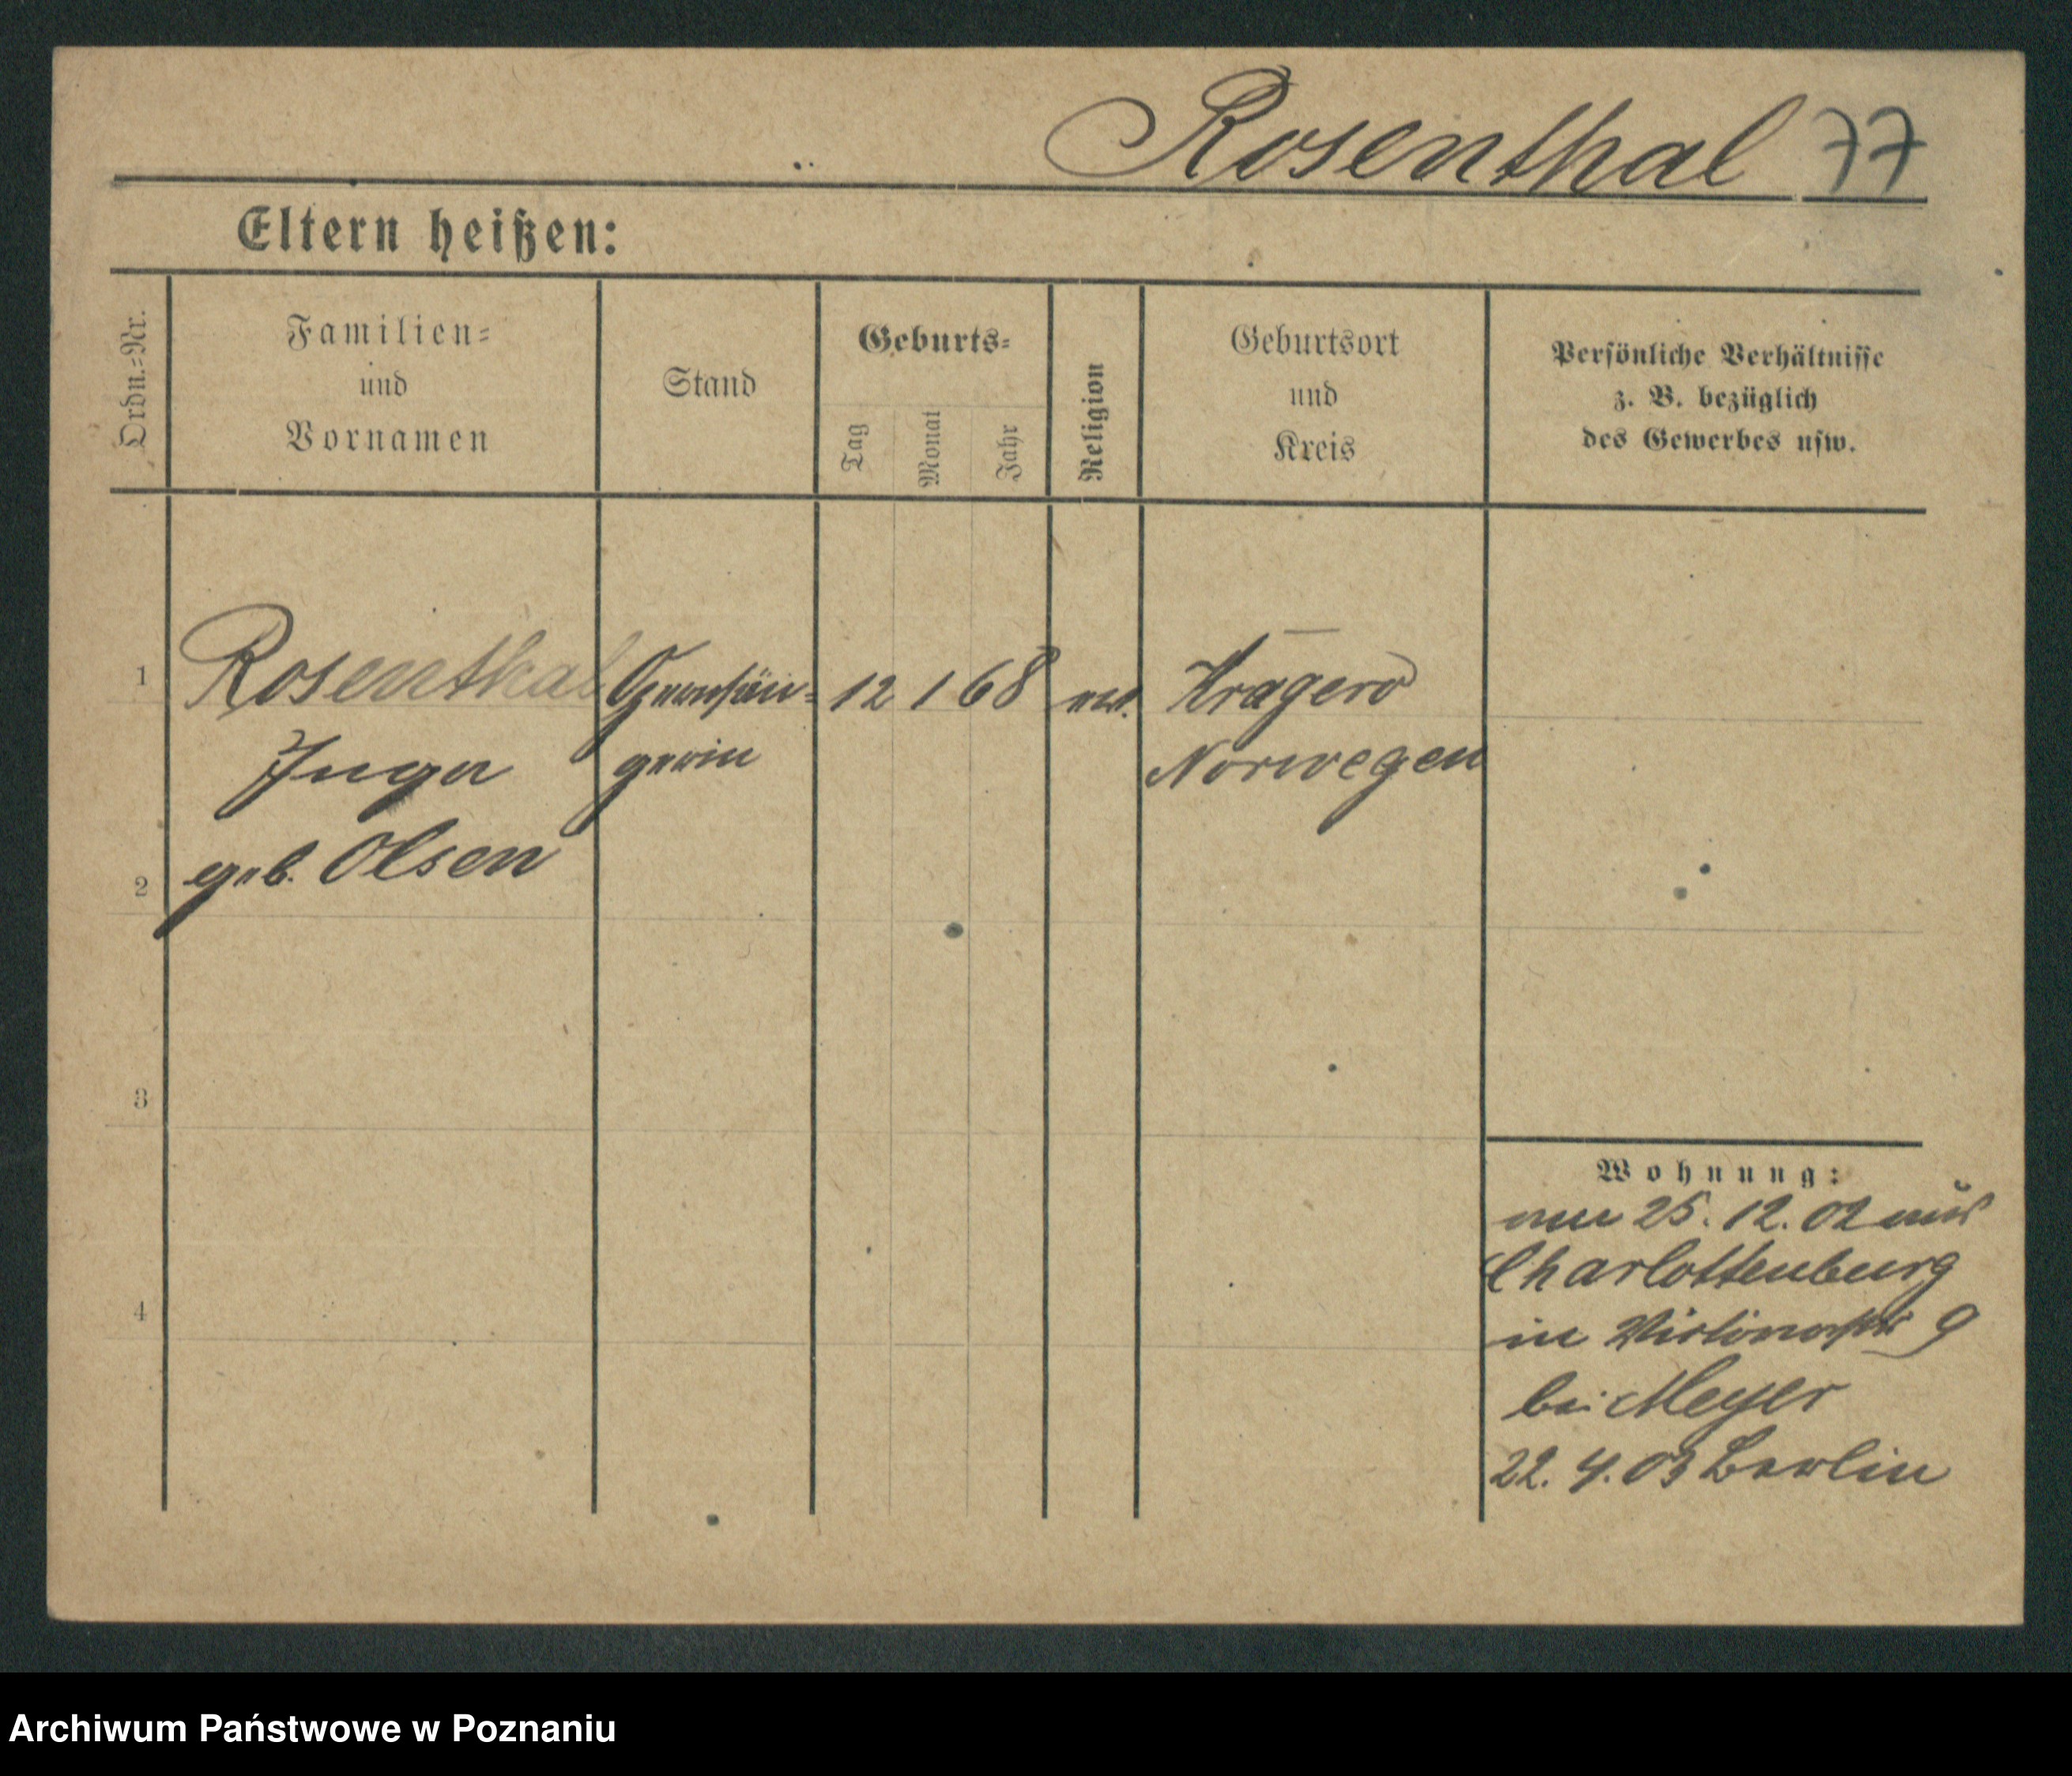 Rosenthal 77
Eltern heißen:
Ordn.=Nr.
Familien=
und
Vornamen
Stand
Geburts=
Tag
Monat
Jahr
Religion
Geburtsort
und
Kreis
Persönliche Verhältnisse
z. B. bezüglich
des Gewerbes usw.
1 Rosenthal 12 1 68 Kragerö
Inga gerin Norwegen
2 geb. Olsen
3
4
Wohnung:
am 25. 12. 02 aus
Charlottenburg
in 9
bei Meyer
22. 4. 03 Berlin
Archiwum Państwowe w Poznaniu